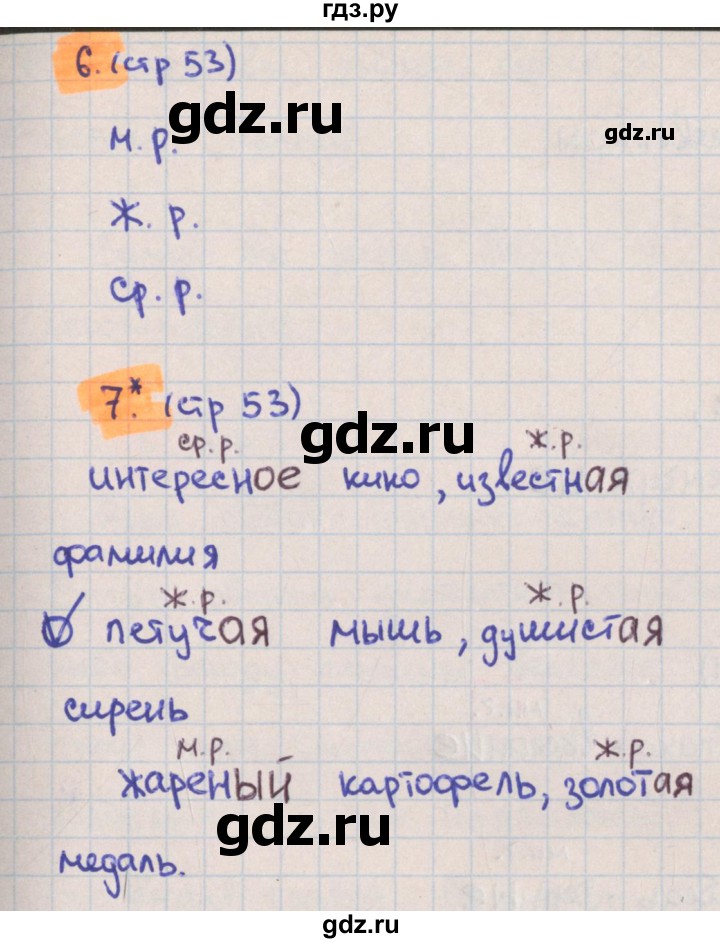 гдз.ру
6. (стр 53)
gdz.ru
gdz.ru
м. р.
ж. р.
ср. р.
7.* (стр 53)
gdz.ru
ср. р. ж. р.
интересное кино, известная
фамилия
ж. р. ж. р.
летучая мышь, душистая
сирень
м. р. ж. р.
жареный картофель, золотая
gdz.ru
медаль.
gdz.ru